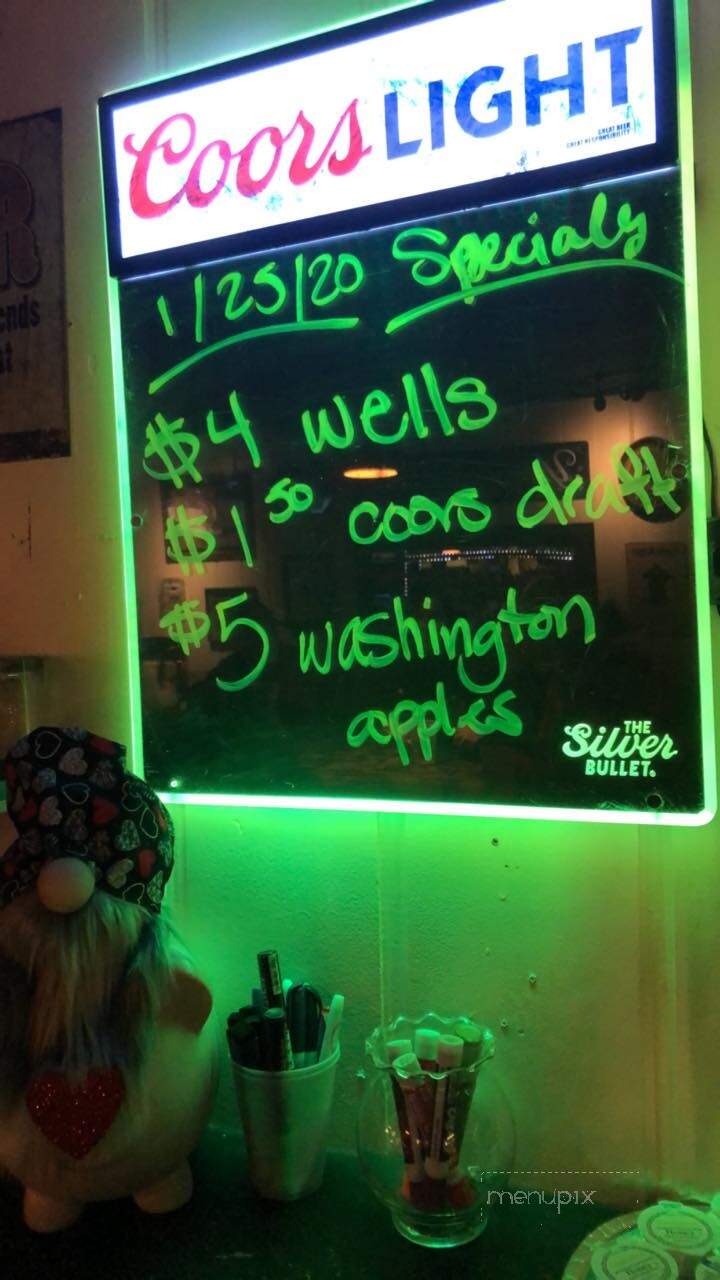 Coors LIGHT
GREAT BEER
GREAT RESPONSIBILITY
1/25/20 Specials
$4 wells
$1 50 coors draft
$5 washington
apples
THE
Silver
BULLET
R
ends
at
menupix